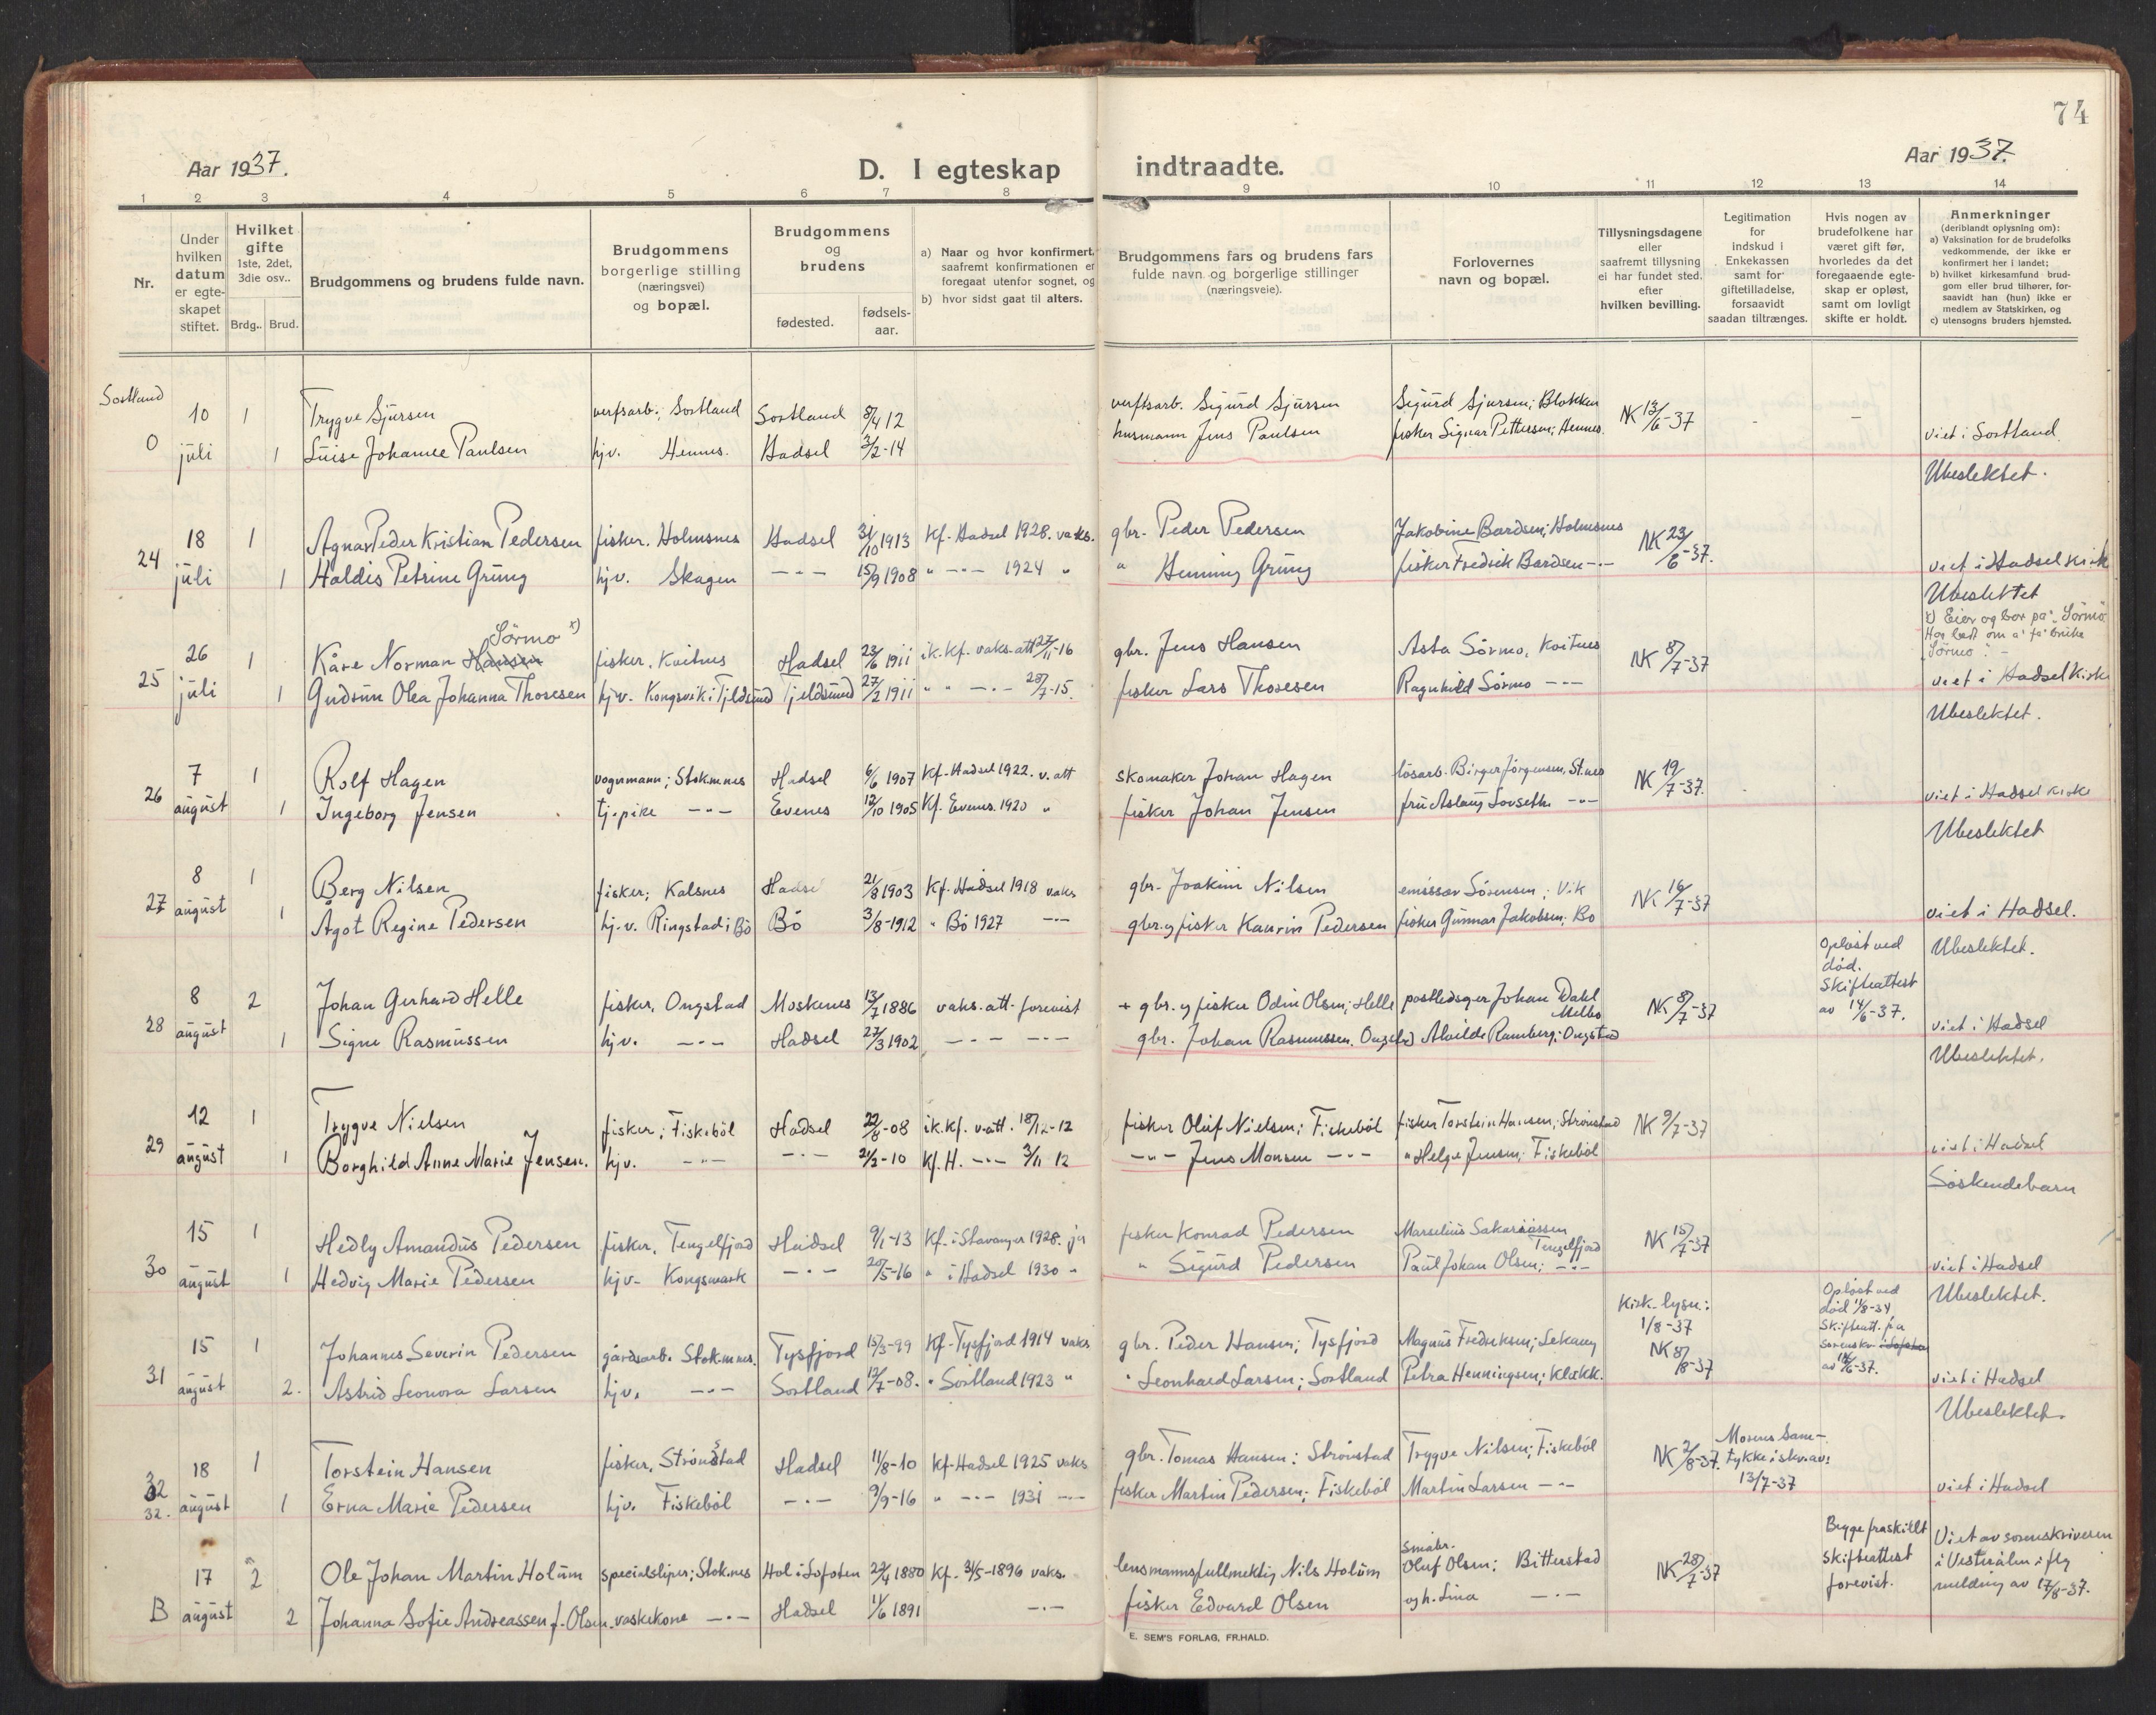 74
Aar 1937.
D. I egteskap indtraadte.
Aar 1937.
1 2 3 4 5 6 7 8 9 10 11 12 13 14
Nr.
Under hvilken datum er egteskapet stiftet.
Hvilket gifte 1ste, 2det, 3die osv..
Brdg.. Brud.
Brudgommens og brudens fulde navn.
Brudgommens borgerlige stilling (næringsvei) og bopæl.
Brudgommens og brudens
fødested. fødsels-aar.
a) Naar og hvor konfirmert, saafremt konfirmationen er foregaat utenfor sognet, og
b) hvor sidst gaat til alters.
Brudgommens fars og brudens fars fulde navn og borgerlige stillinger (næringsveie).
Forlovernes navn og bopæl.
Tillysningsdagene eller saafremt tillysning ei har fundet sted, efter hvilken bevilling.
Legitimation for indskud i Enkekassen samt for giftetilladelse, forsaavidt saadan tiltrænges.
Hvis nogen av brudefolkene har været gift før, hvorledes da det foregaaende egteskap er opløst, samt om lovligt skifte er holdt.
Anmerkninger (deriblandt oplysning om):
a) Vaksination for de brudefolks vedkommende, der ikke er konfirmert her i landet;
b) hvilket kirkesamfund brudgom eller brud tilhører, forsaavidt han (hun) ikke er medlem av Statskirken, og
c) utensogns bruders hjemsted.
Sortland
10 1 Trygve Sjursen verfsarb., Sortland Sortland 8/4 12 verftsarb. Sigurd Sjursen Sigurd Sjursen; Blokken NK 13/6-37
0 juli 1 Luise Johanne Paulsen hjv. Hennes. Hadsel 3/2-14 husmann Jens Paulsen fisker Signar Pettersen; Hennes. viet i Sortland.
Ubeslektet.
18 1 Agnar Peder Kristian Pedersen fisker. Holmsnes Hadsel 31/10 1913 Kf. Hadsel 1928. vaks. gbr. Peder Pedersen Jakobine Bardsen; Holmsnes NK 23/6-37.
24 juli 1 Haldis Petrine Grung hjv. Skagen -"- 15/9 1908 " -"- 1924 " " Henning Grung fisker Fredrik Bardsen -"- viet i Hadsel kirk
Ubeslektet
x) Eier og bor på "Sørmo"
Har bedt om å få bruke
"Sørmo". -
Sørmo x)
26 1 Kåre Norman Hansen fisker, Kvitnes Hadsel 23/6 1911 ik.kf. vaks.att 27/11-16 gbr. Jens Hansen Asta Sørmo, Kvitnes NK 8/7-37
25 juli 1 Gudrun Olea Johanna Thoresen hjv. Kongsvik i Tjeldsund Tjeldsund 27/2 1911 " " -"- 28/7-15. fisker Lars Thoresen Ragnhild Sørmo -"- viet i Hadsel Kirke
Ubeslektet.
7 1 Rolf Hagen vognmann; Stokmnes Hadsel 6/6 1907 Kf. Hadsel 1922. v. att skomaker Johan Hagen løsarb. Birger Jørgensen, St.nes NK 19/7-37.
26 august 1 Ingeborg Jensen tj.pike -"- Evenes 12/10 1905 Kf. Evenes. 1920 " fisker Johan Jensen fru Aslaug Lovseth -"- viet i Hadsel kirke
Ubeslektet
8 1 Berg Nilsen fisker; Kalsnes Hadsel 21/8 1903 Kf. Hadsel 1918 vaks gbr. Joakim Nilsen emissær Sørensen; Vik NK 16/7-37
27 august 1 Ågot Regine Pedersen hj.v. Ringstad i Bø Bø 3/8-1912 " Bø 1927 -"- gbr. og fisker Kaurin Pedersen fisker Gunnar Jakobsen; Bø viet i Hadsel.
Ubeslektet.
Opløst ved død. Skifteattest av 14/6-37.
8 2 Johan Gerhard Helle fisker, Ongstad Moskenes 13/7 1886 vaks. att. forevist + gbr. og fisker Odin Olsen; Helle Johan Dahl Melbo NK 8/7-37
28 august 1 Signe Rasmussen hjv. -"- Hadsel 27/3 1902 -"- -"- gbr. Johan Rasmussen. Ongstad Alvilde Ramberg; Ongstad viet i Hadsel
Ubeslektet.
12 1 Trygve Nielsen fisker; Fiskebøl Hadsel 22/8-08 ik.kf. v.att. 18/12-12 fisker Oluf Nielsen; Fiskebøl fisker Torstein Hansen; Strønstad NK 9/7-37
29 august 1 Borghild Anne Marie Jensen. hjv. -"- -"- 21/2-10 kf. H. -"- 3/11 12 -"- Jens Monsen -"- " Helge Jensen; Fiskebøl viet i Hadsel
Søskendebarn
15 1 Hedly Amandus Pedersen fisker, Tengelfjord Hadsel 9/1-13 Kf. i Stavanger 1928. ja fisker Konrad Pedersen Marselius Sakariassen Tengelfjord NK 15/7-37
30 august 1 Hedvig Marie Pedersen hjv. Kongsmark -"- 20/5-16 " i Hadsel 1930 " " Sigurd Pedersen Paul Johan Olsen; -"- viet i Hadsel
Ubeslektet.
Kirk. lysn.: 1/8-37
Opløst ved død 1/8-34 Skifteatt. fra sorenskr. i Lofoten av 18/6-37.
15 1 Johannes Severin Pedersen gårdsarb. Stokmnes. Tysfjord 15/3-99 Kf. Tysfjord 1914 vaks gbr. Peder Hansen; Tysfjord Magnus Fredriksen; Lekang NK 8/8-37
31 august 2. Astrid Leonora Larsen hjv. -"- Sortland 12/7-08. " Sortland 1923 " " Leonhard Larsen; Sortland Petra Henningsen; Klakk. viet i Hadsel
Ubeslektet.
18 1 Torstein Hansen fisker, Strønstad Hadsel 11/8-10 kf. Hadsel 1925 vaks gbr. Tomas Hansen: Strønstad Trygve Nilsen; Fiskebøl NK 2/8-37. Morens Samtykke i skr. av: 13/7-37
32
32. august 1 Erna Marie Pedersen hjv. Fiskebøl -"- 9/9-16 " -"- 1931 -"- fisker Martin Pedersen; Fiskebøl Martin Larsen -"- viet i Hadsel
Begge fraskillt Skifteattest forevist.
Viet av sorenskriveren i Vesterålen iflg melding av 17/8-37.
17 2 Ole Johan Martin Holum specialsliper; Stokmnes Hol i Lofoten 22/4 1880 Kf. 31/5-1896 vaks. lensmannsfullmektig Nils Holum småbr. Oluf Olsen; Bitterstad NK 28/7-37
B august 2 Johanna Sofie Andreassen f. Olsen. vaskekone -"- Hadsel 11/6 1891 -"- fisker Edvard Olsen og h. Lina -"-
E. SEM'S FORLAG, FR.HALD.